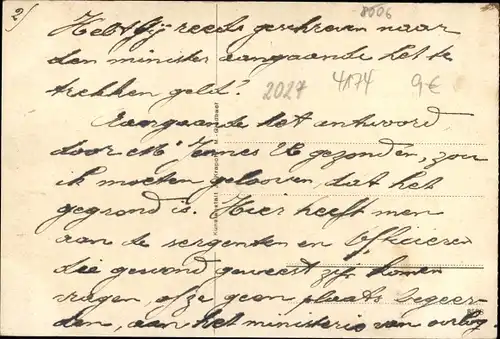 2)
8506
Hebt gij reeds geschreven naar
den minister aangaande het te
trekken geld?
2027 4174 9€
Aangaande het antwoord
door Mr Jennes U gezonden, zou
ik moeten gelooven, dat het
gegrond is. Hier heeft men
aan de sergenten en Officieren
die gewond geweest zijn komen
vragen, of ze geen plaats begeer-
den, aan het ministerie van oorlog